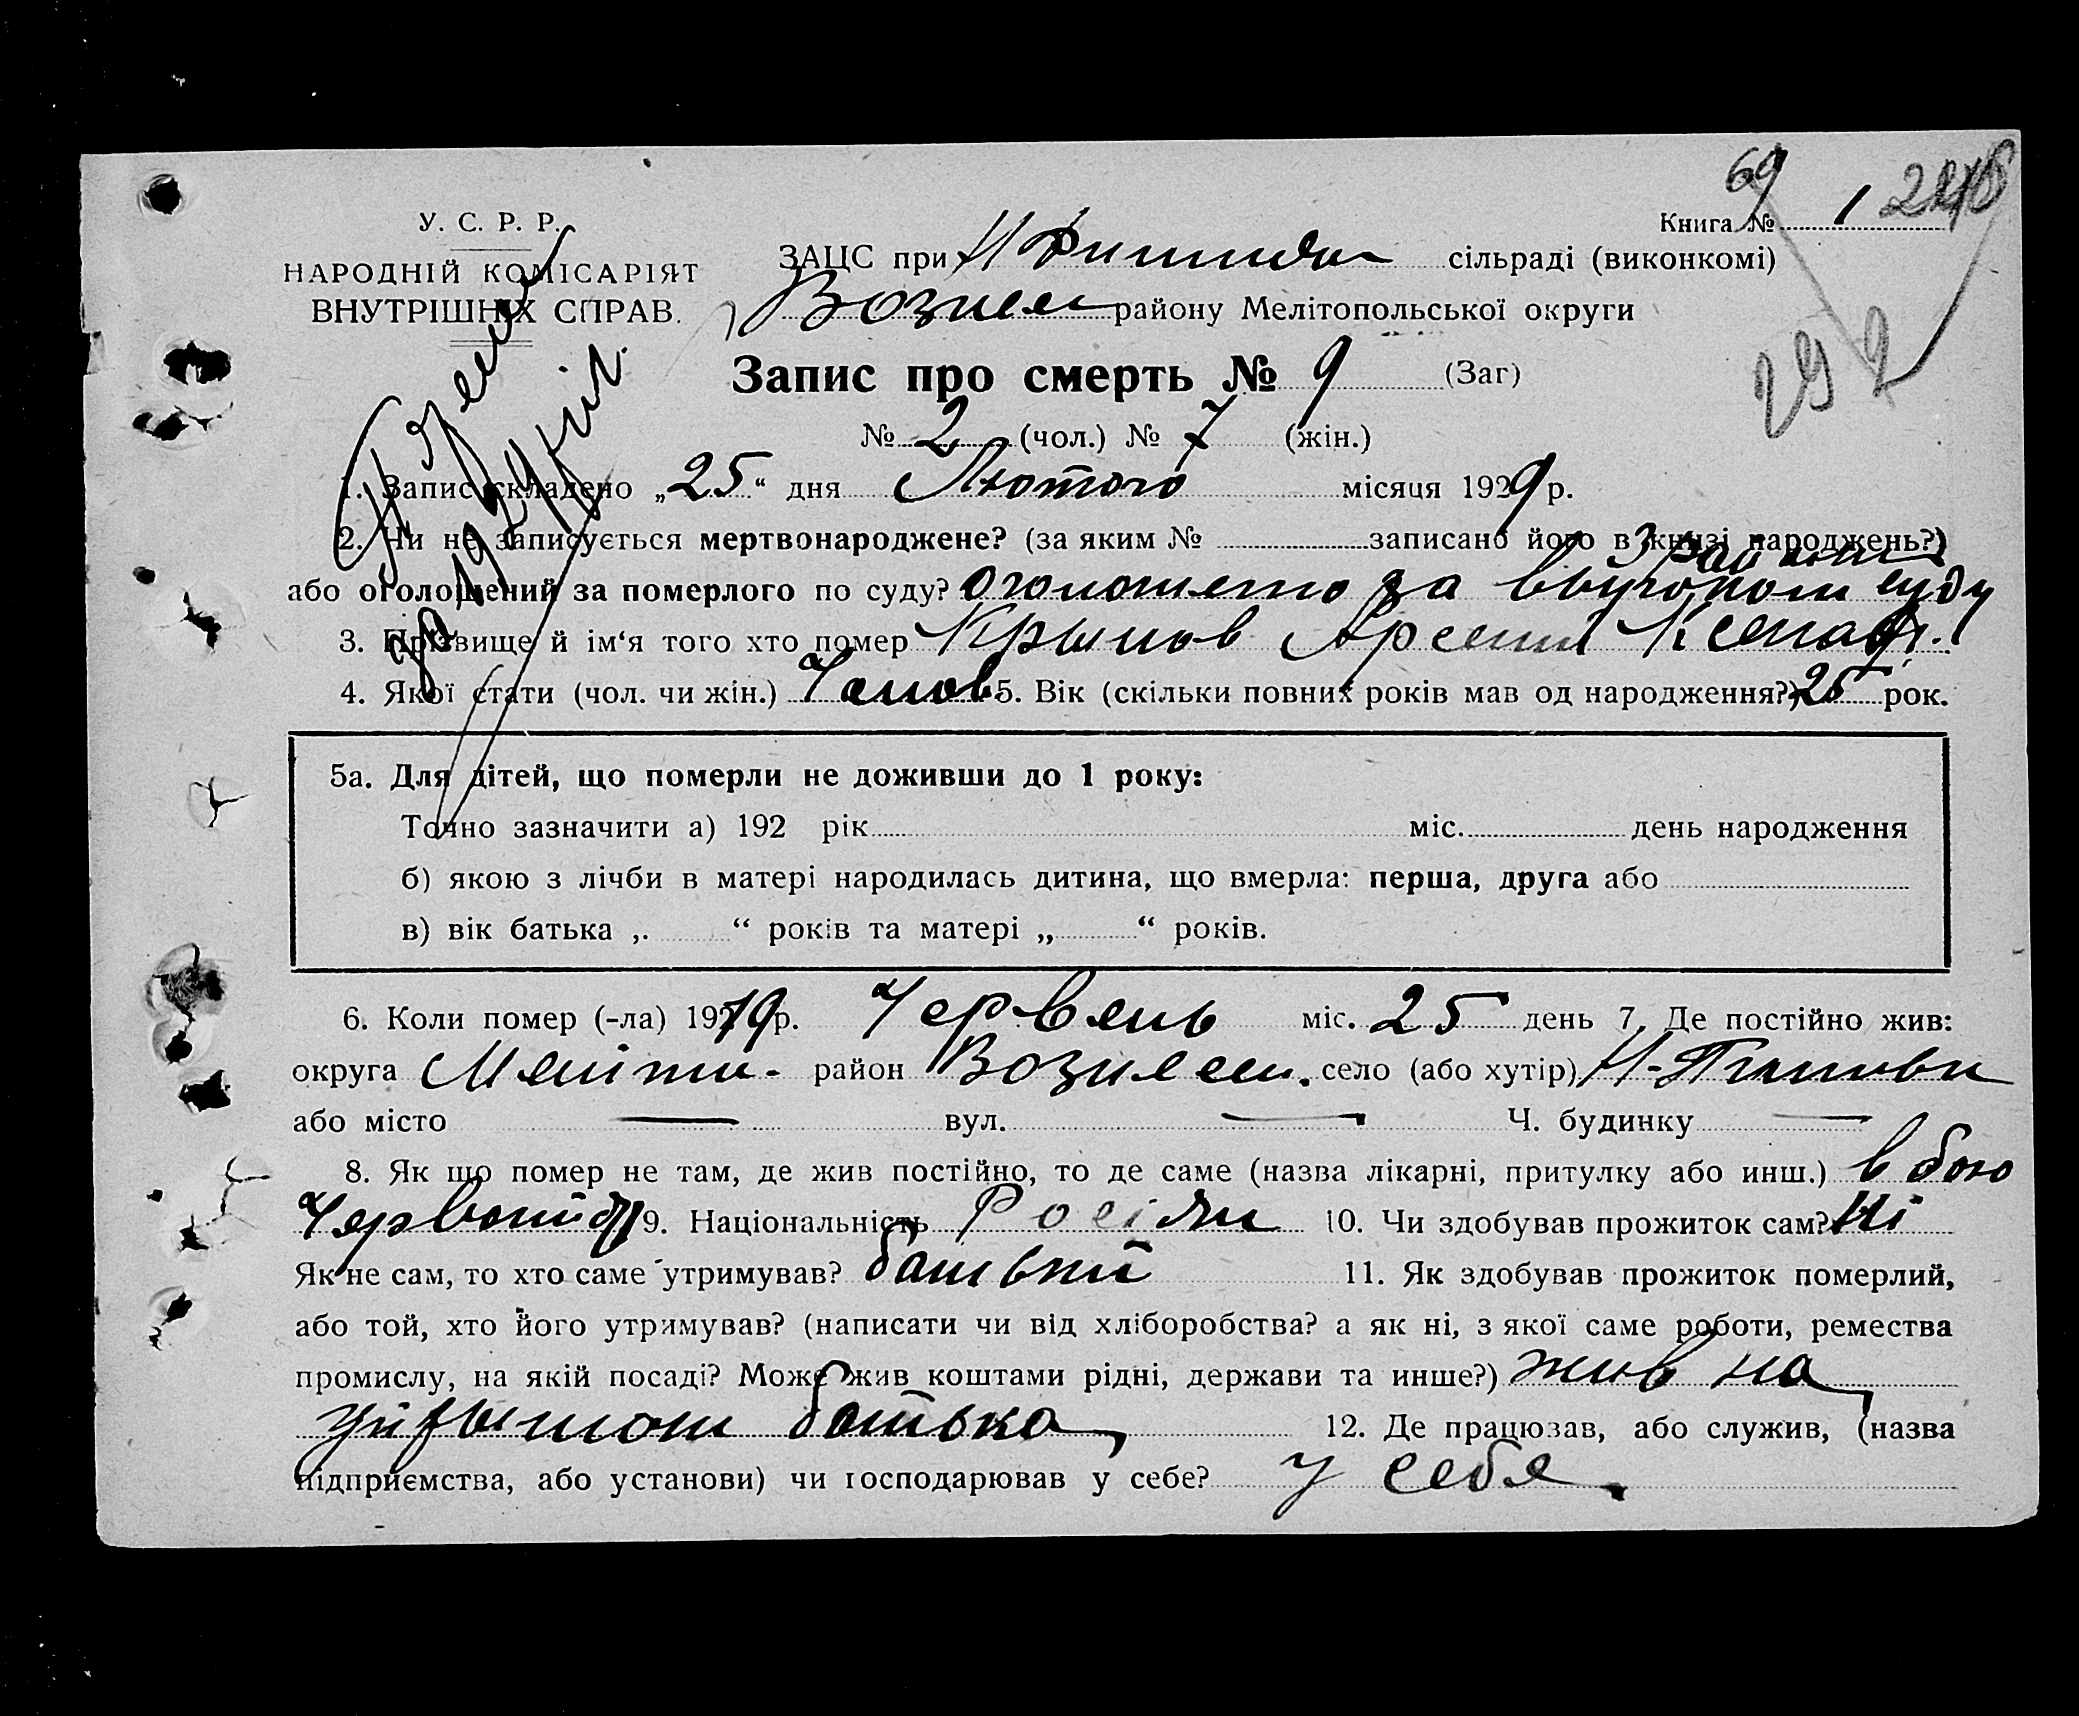 69
Книга № 1
У. С. Р. Р.
НАРОДНІЙ КОМІСАРІЯТ
ВНУТРІШНІХ СПРАВ.
ЗАЦС при сільраді (виконкомі)
району Мелітопольської округи
292
Запис про смерть № 9 (Заг)
№ 2 (чол.) № 7 (жін.)
1. Запис складено „25“ дня Лютого місяця 1929 р.
2. Чи не записується мертвонароджене? (за яким № записано його в книзі народжень?)
або оголошений за померлого по суду? за суду
3. Прізвище й ім‘я того хто помер Крылов
4. Якої стати (чол. чи жін.) 5. Вік (скільки повних років мав од народження?) 25 рок.
5а. Для дітей, що померли не доживши до 1 року:
Точно зазначити а) 192 рік міс. день народження
б) якою з лічби в матері народилась дитина, що вмерла: перша, друга або
в) вік батька „ “ років та матері „ “ років.
6. Коли помер (-ла) 1919 р. Червень міс. 25 день 7. Де постійно жив:
округа район село (або хутір)
або місто — вул. — Ч. будинку —
8. Як що помер не там, де жив постійно, то де саме (назва лікарні, притулку або инш.) в бою
9. Національність 10. Чи здобував прожиток сам? Ні
Як не сам, то хто саме утримував? 11. Як здобував прожиток померлий,
або той, хто його утримував? (написати чи від хліборобства? а як ні, з якої саме роботи, ремества
промислу, на якій посаді? Може жив коштами рідні, держави та инше?) жив на
батька 12. Де працював, або служив, (назва
підприємства, або установи) чи господарював у себе? у себя